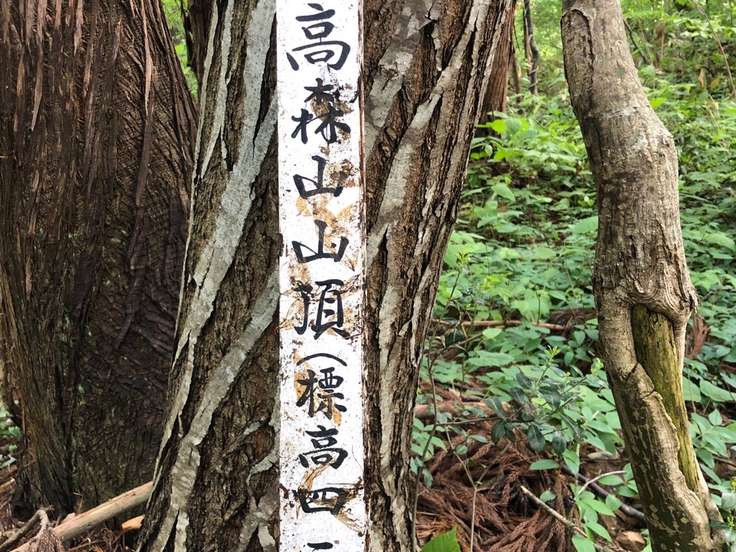 高森山山頂(標高四